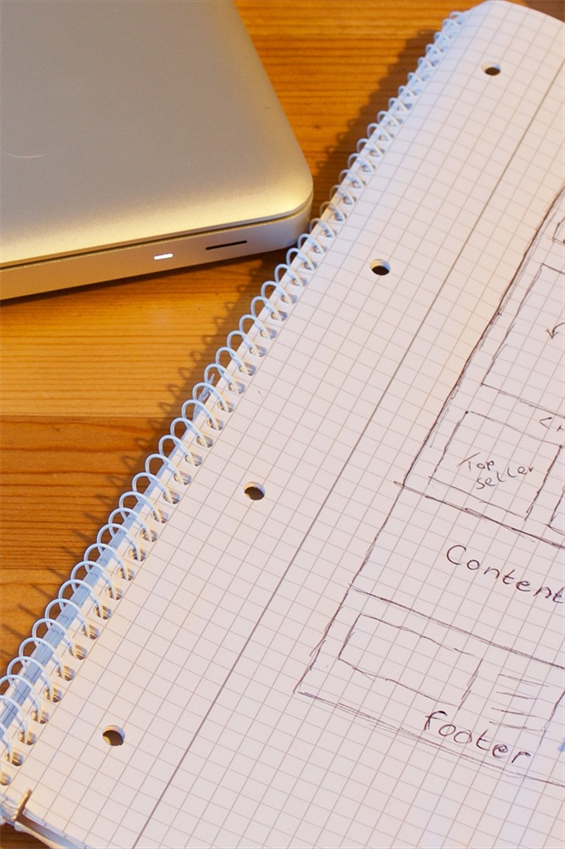 Top
Seller
Content
footer